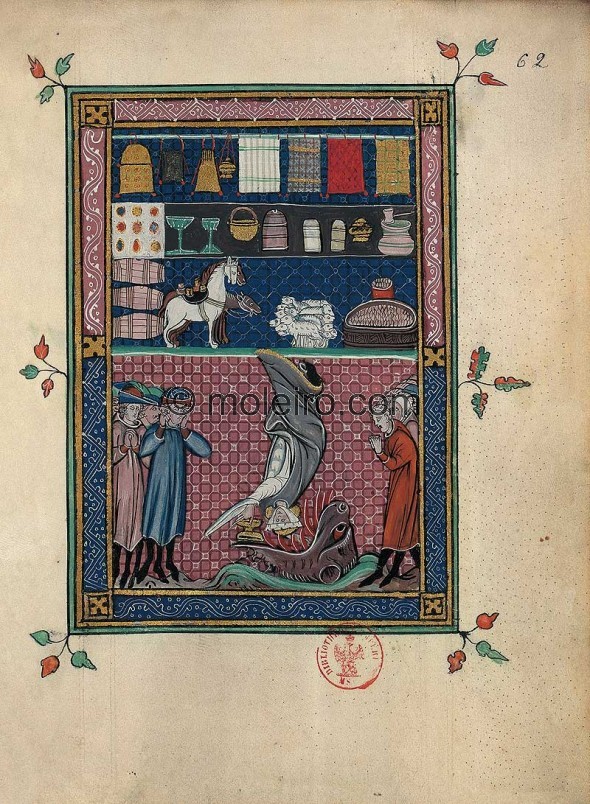 62
© moleiro.com
BIBLIOTH